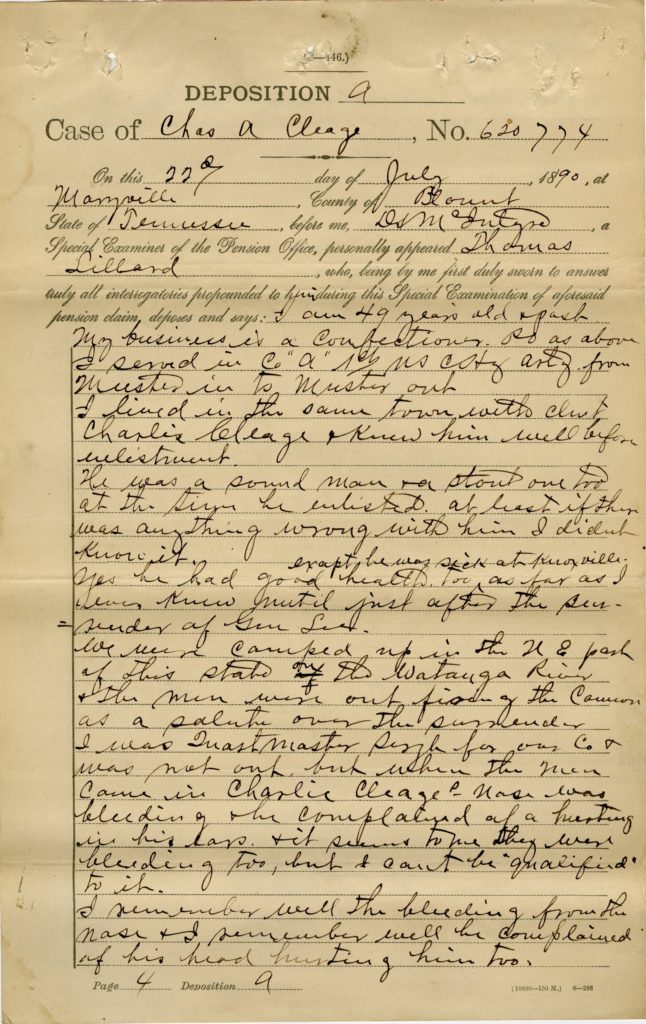 (3—446.)
DEPOSITION A
Case of Chas A Cleage, No. 620774
On this 22d day of July, 1890, at
Maryville, County of Blount
State of Tennessee, before me, D S McIntyre, a
Special Examiner of the Pension Office, personally appeared Thomas
Lillard, who, being by me first duly sworn to answer
truly all interrogatories propounded to him during this Special Examination of aforesaid
pension claim, deposes and says: I am 49 years old & past
My business is a Confectioner. PO as above
I served in Co "A" 1st US C Hy arty from
Muster in to Muster out
I lived in the same town with clmt
Charlie Cleage & knew him well before
enlistment.
He was a sound man & a stout one too
at the time he enlisted. at least if there
was anything wrong with him I didnt
know it.
except he was sick at Knoxville.
Yes he had good health too as far as I
ever knew until just after the sur-
render of Gen Lee.
We were camped up in the N E part
of this state on the Watauga River
& the men were out firing the Cannon
as a salute over the surrender
I was Quart Master Sergt for our Co &
was not out but when the men
came in Charlie Cleages nose was
bleeding & he complained of a hurting
in his ears. & it seems to me they were
bleeding too, but I cant be "qualified"
to it.
I remember well the bleeding from the
nose & I remember well he complained
of his head hurting him too.
Page 4 Deposition A (18890—150 M.) 6—288